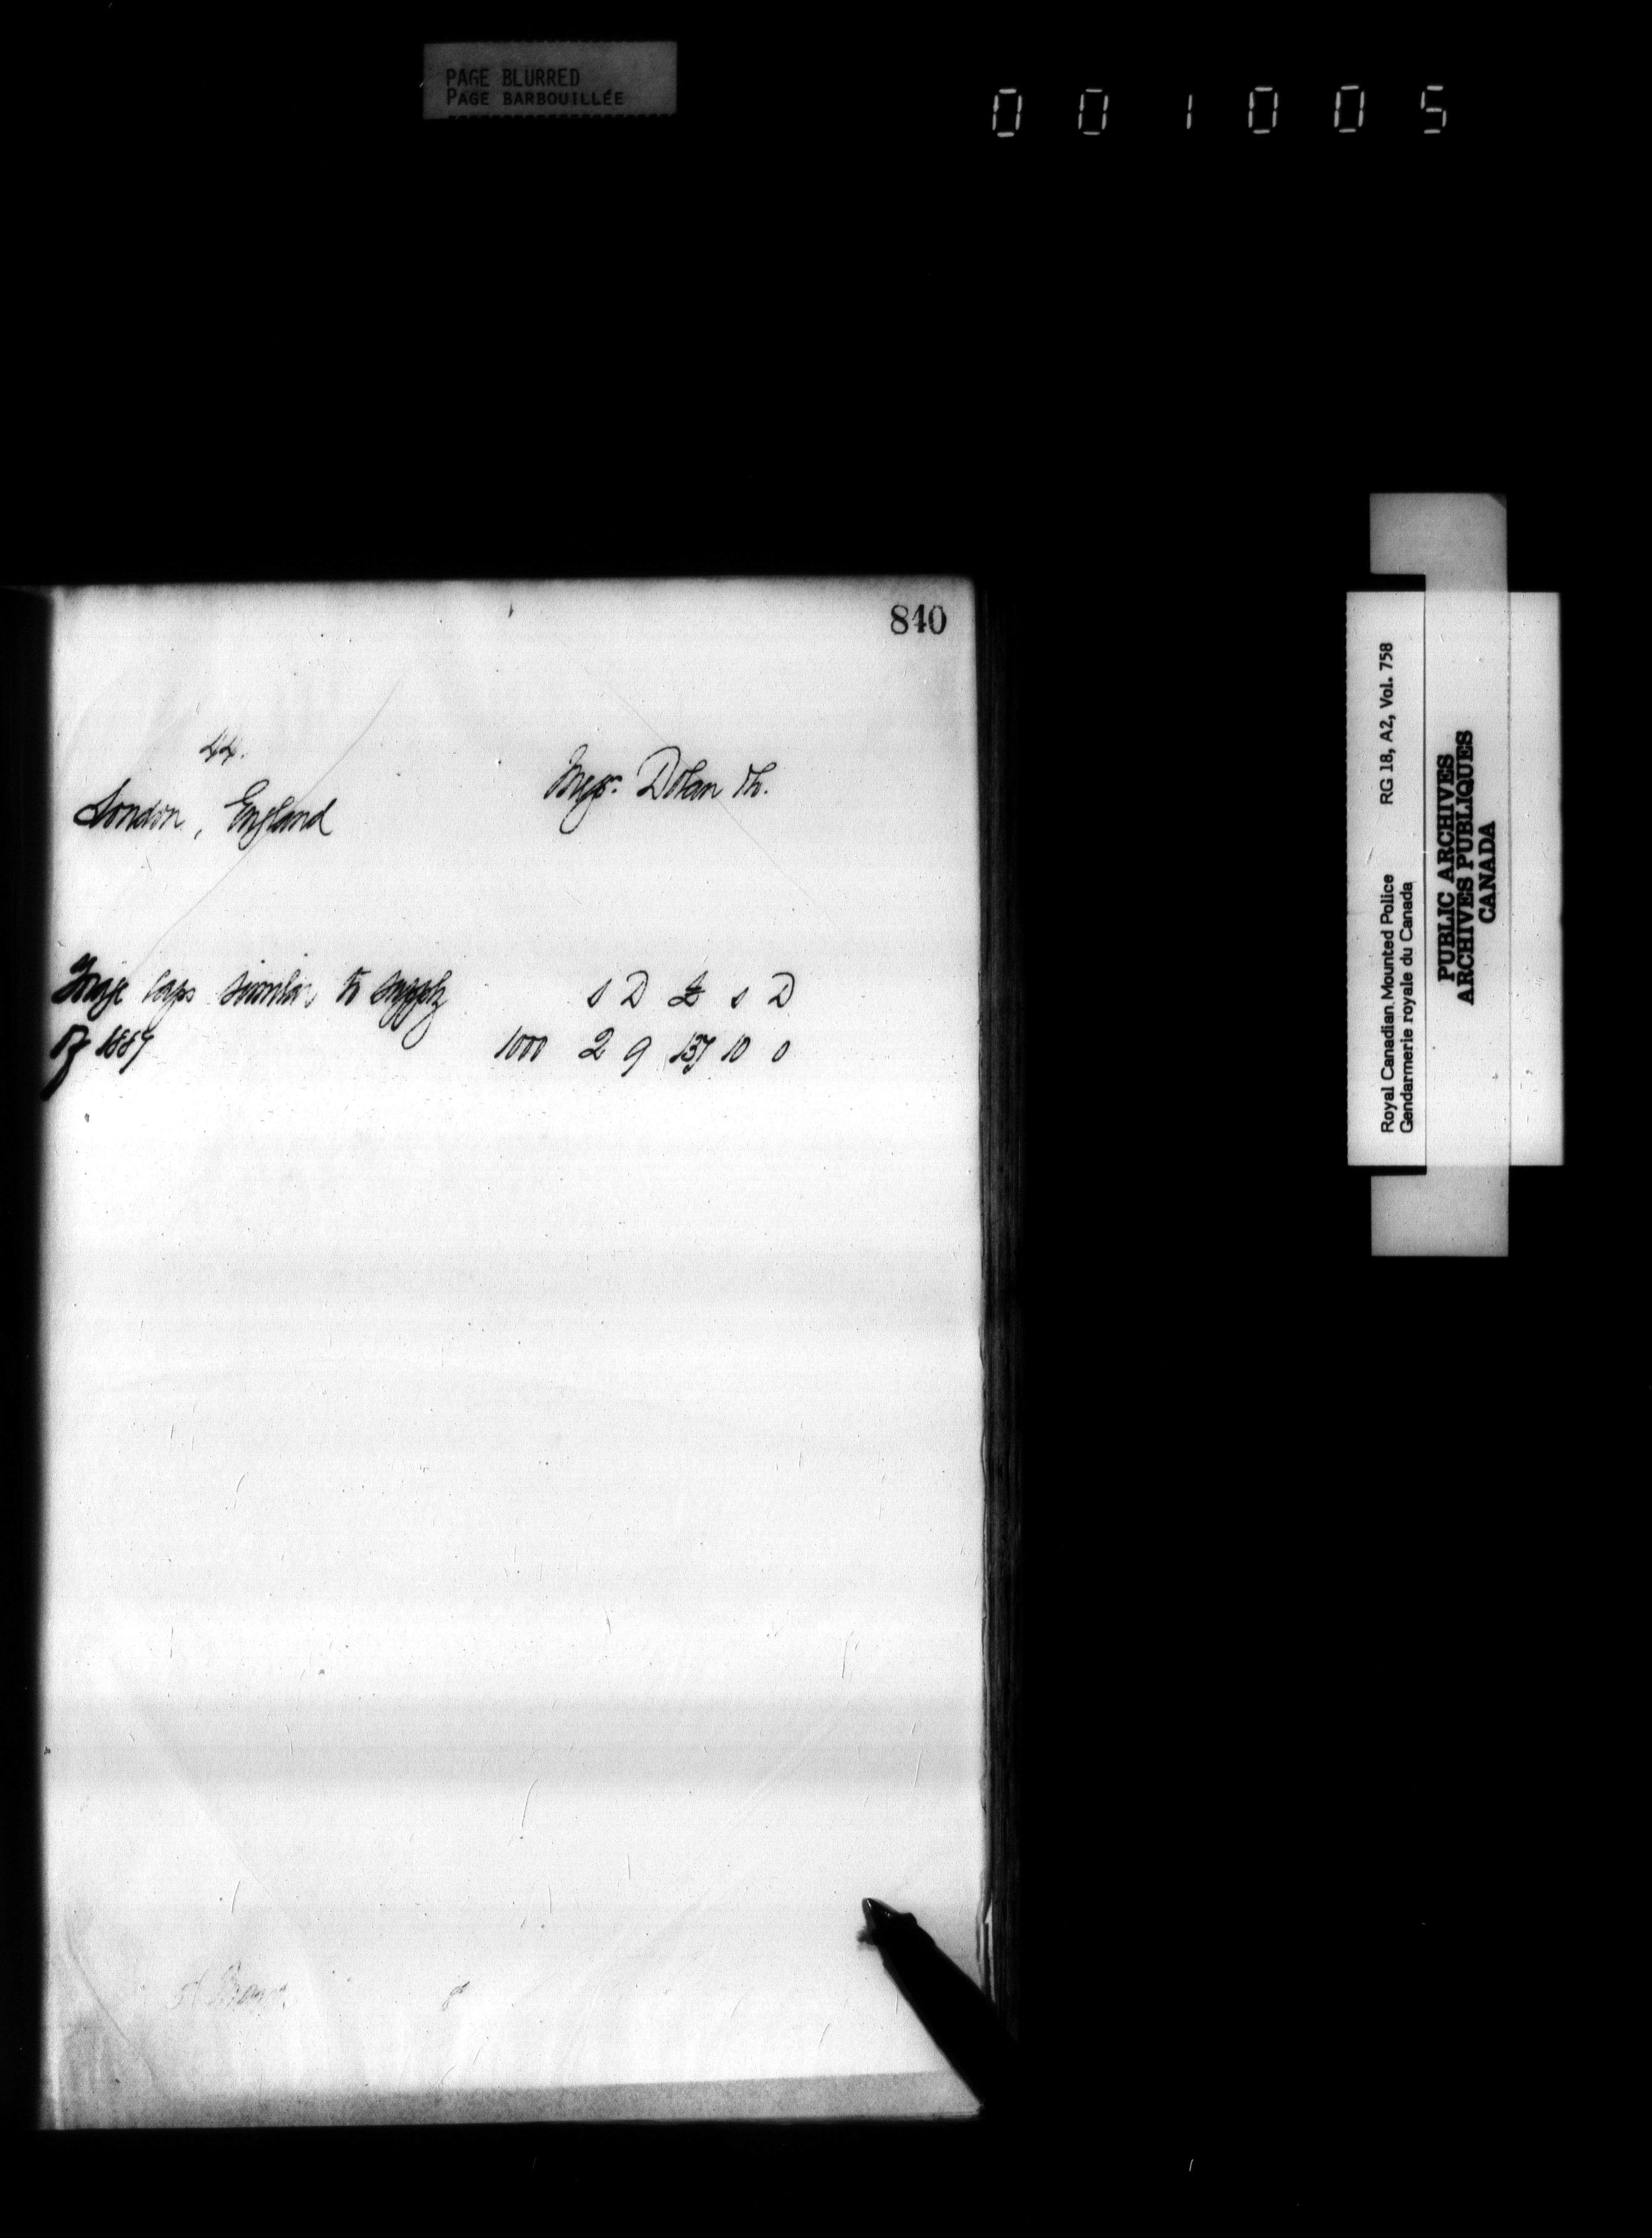 PAGE BLURRED
PAGE BARBOUILLÉE
001005
840
44.
London, England
Messrs. Dolan Th.
Forage Caps similar to supply
of 1887
s D £ s D
1000 2 9 137 10 0
Royal Canadian Mounted Police RG 18, A2, Vol. 758
Gendarmerie royale du Canada
PUBLIC ARCHIVES
ARCHIVES PUBLIQUES
CANADA